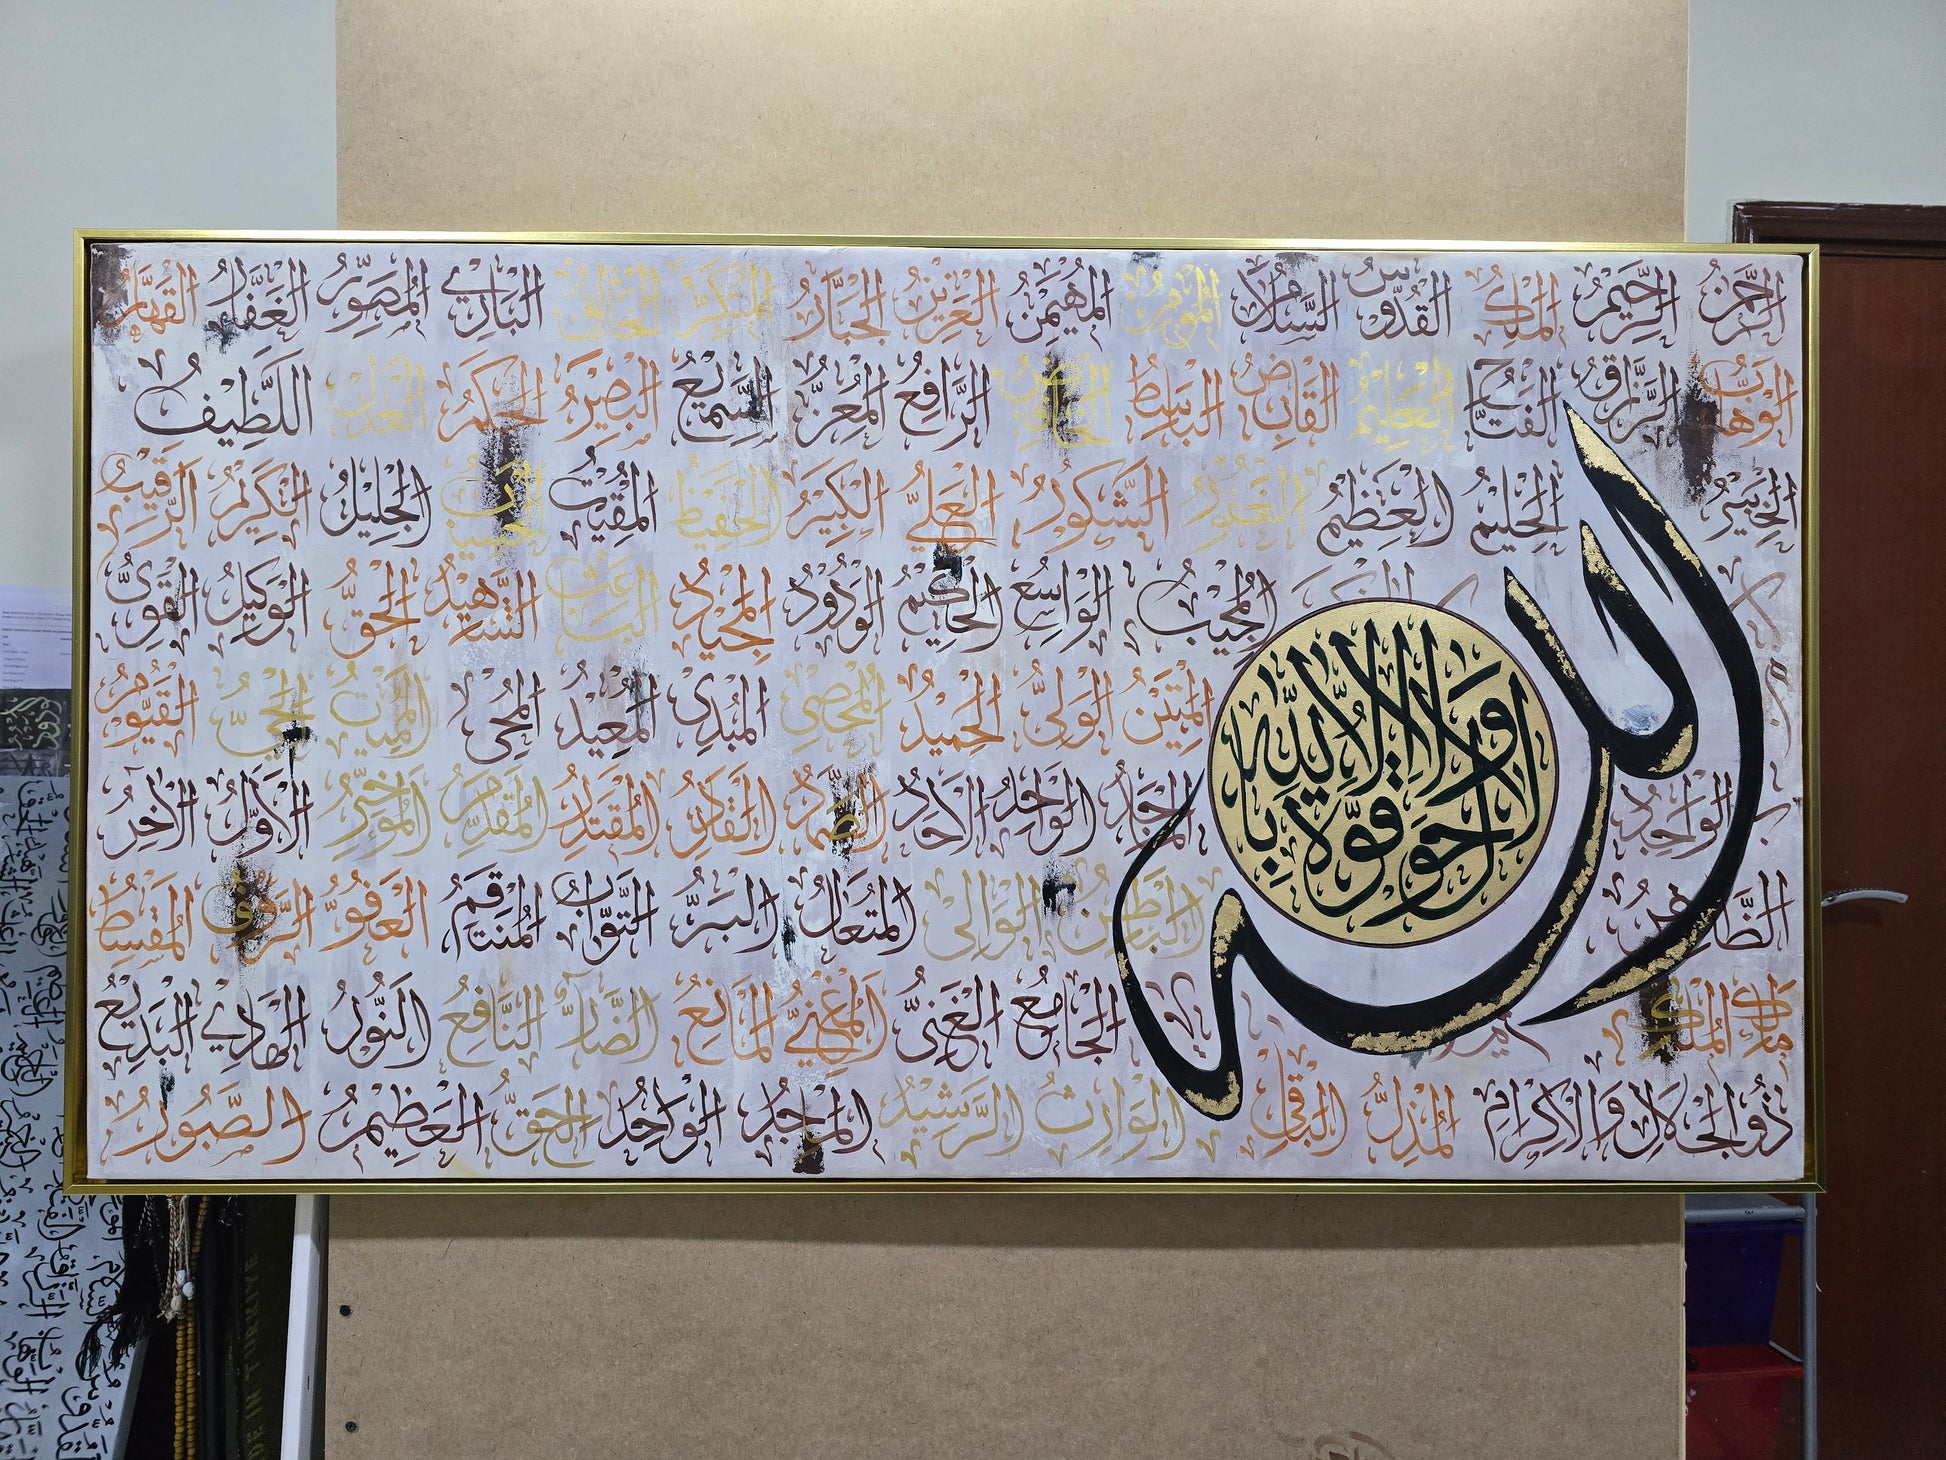 الرَّحْمٰنُ الرَّحِيْمُ المَلِكُ القُدُّوسُ السَّلَامُ المُؤمِنُ المُهَيْمِنُ العَزِيْزُ الجَبَّارُ المُتَكَبِّرُ الخَالِقُ البَارِئُ المُصَوِّرُ الغَفَّارُ القَهَّارُ
الوَهَّابُ الرَّزَّاقُ الفَتَّاحُ العَلِيْمُ القَابِضُ البَاسِطُ الخَافِضُ الرَّافِعُ المُعِزُّ السَّمِيْعُ البَصِيْرُ الحَكَمُ العَدْلُ اللَّطِيْفُ
الخَبِيْرُ الحَلِيْمُ العَظِيْمُ الغَفُوْرُ الشَّكُوْرُ العَلِيُّ الكَبِيْرُ الحَفِيْظُ المُقِيْتُ الحَسِيْبُ الجَلِيْلُ الكَرِيْمُ الرَّقِيْبُ
المُجِيْبُ الوَاسِعُ الحَكِيْمُ الوَدُوْدُ المَجِيْدُ البَاعِثُ الشَّهِيْدُ الحَقُّ الوَكِيْلُ القَوِىُّ
المَتِيْنُ الوَلِىُّ الحَمِيْدُ المُحْصِىْ المُبْدِئُ المُعِيْدُ المُحْىِ المُمِيْتُ الحَيُّ القَيُّوْمُ
الوَاجِدُ المَاجِدُ الوَاحِدُ الاَحَدُ الصَّمَدُ القَادِرُ المُقْتَدِرُ المُقَدِّمُ المُؤَخِّرُ الاَوَّلُ الاٰخِرُ
الظَّاهِرُ البَاطِنُ الوَالِى المُتَعَالُ البَرُّ التَّوَّابُ المُنْتَقِمُ العَفُوُّ الرَّؤُفُ المُقْسِطُ
مَالِكُ المُلْكِ الجَامِعُ الغَنِىُّ المُغْنِيُّ المَانِعُ الضَّارُّ النَّافِعُ النُّوْرُ الهَادِيْ البَدِيْعُ
ذُوالجَلَالِ وَالْاِكْرَامِ المُذِلُّ البَاقِىْ الوَارِثُ الرَّشِيْدُ المَاجِدُ الوَاحِدُ الحَقُّ العَظِيْمُ الصَّبُوْرُ
الله
لَا حَوْلَ وَلَا قُوَّةَ اِلَّا بِاللّٰهِ
IN TURKIYE